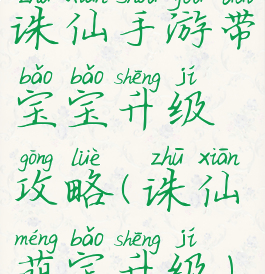 诛仙手游带
bǎo bǎo shēng jí
宝宝升级
gōng lüè zhū xiān
攻略(诛仙
méng bǎo shēng jí
萌宝升级)